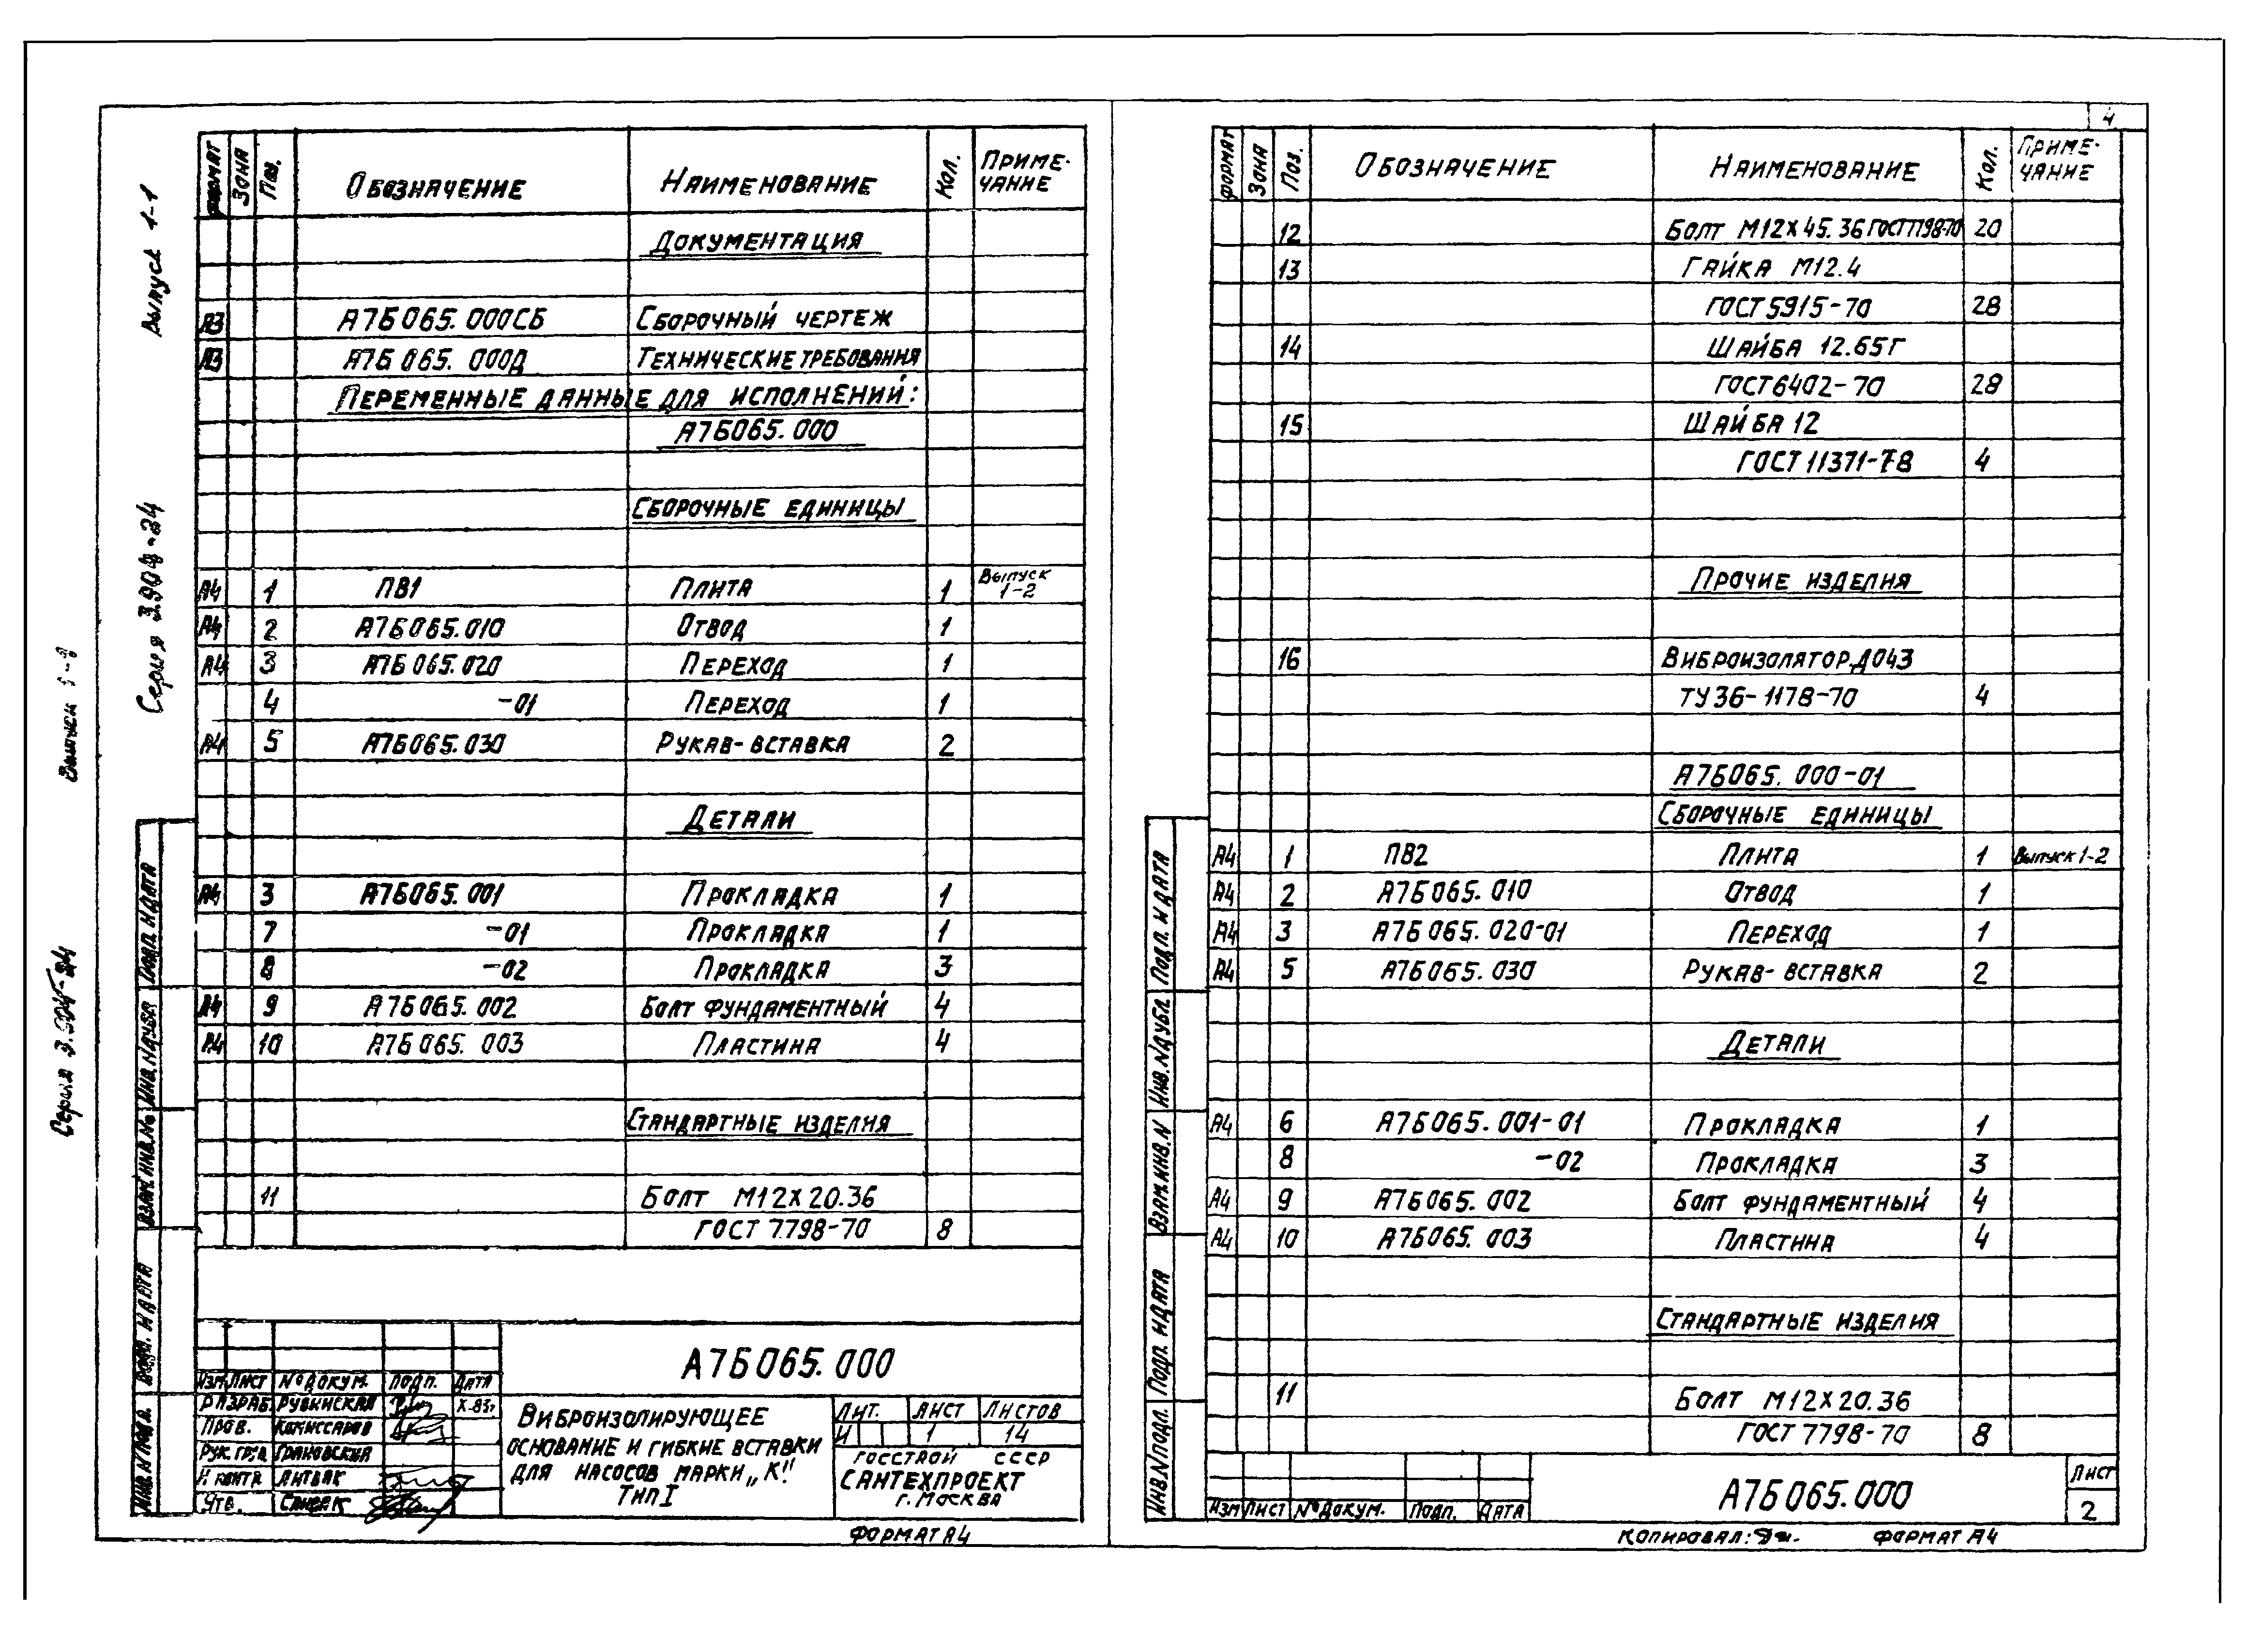 4
Выпуск 1-1
Серия 3.904-24
Серия 3.904-24
ФОРМАТ ЗОНА ПОЗ. ОБОЗНАЧЕНИЕ НАИМЕНОВАНИЕ КОЛ. ПРИМЕ-ЧАНИЕ
ДОКУМЕНТАЦИЯ
А3 А7Б 065.000СБ СБОРОЧНЫЙ ЧЕРТЕЖ
А3 А7Б 065.000Д ТЕХНИЧЕСКИЕ ТРЕБОВАНИЯ
ПЕРЕМЕННЫЕ ДАННЫЕ ДЛЯ ИСПОЛНЕНИЙ:
А7Б065.000
СБОРОЧНЫЕ ЕДИНИЦЫ
А4 1 ПВ1 ПЛИТА 1 Выпуск 1-2
А4 2 А7Б065.010 ОТВОД 1
А4 3 А7Б 065.020 ПЕРЕХОД 1
4 -01 ПЕРЕХОД 1
А4 5 А7Б065.030 РУКАВ-ВСТАВКА 2
ДЕТАЛИ
А4 3 А7Б065.001 ПРОКЛАДКА 1
7 -01 ПРОКЛАДКА 1
8 -02 ПРОКЛАДКА 3
А4 9 А7Б065.002 БОЛТ ФУНДАМЕНТНЫЙ 4
А4 10 А7Б 065.003 ПЛАСТИНА 4
СТАНДАРТНЫЕ ИЗДЕЛИЯ
11 БОЛТ М12Х20.36
ГОСТ 7798-70 8
ПОДП. И ДАТА
ИНВ. № ДУБЛ.
ВЗАМ. ИНВ. №
ПОДП. И ДАТА
ИНВ. № ПОДЛ.
ИЗМ ЛИСТ № ДОКУМ. ПОДП. ДАТА
РАЗРАБ. РУБИНСКАЯ Х.83г
ПРОВ. КОМИССАРОВ
РУК. ГР. ГРАНОВСКИЙ
Н КОНТР. ЛИТВАК
УТВ. СПИВАК
А7Б065.000
ВИБРОИЗОЛИРУЮЩЕЕ
ОСНОВАНИЕ И ГИБКИЕ ВСТАВКИ
ДЛЯ НАСОСОВ МАРКИ „К"
ТИП I
ЛИТ. ЛИСТ ЛИСТОВ
И 1 14
ГОССТРОЙ СССР
САНТЕХПРОЕКТ
Г. МОСКВА
ФОРМАТ А4
ФОРМАТ ЗОНА ПОЗ. ОБОЗНАЧЕНИЕ НАИМЕНОВАНИЕ КОЛ. ПРИМЕ-ЧАНИЕ
12 БОЛТ М12Х45.36 ГОСТ7798-70 20
13 ГАЙКА М12.4
ГОСТ 5915-70 28
14 ШАЙБА 12.65Г
ГОСТ 6402-70 28
15 ШАЙБА 12
ГОСТ 11371-78 4
ПРОЧИЕ ИЗДЕЛИЯ
16 ВИБРОИЗОЛЯТОР Д043
ТУ 36-1178-70 4
А7Б065.000-01
СБОРОЧНЫЕ ЕДИНИЦЫ
А4 1 ПВ2 ПЛИТА 1 Выпуск 1-2
А4 2 А7Б 065.010 ОТВОД 1
А4 3 А7Б 065.020-01 ПЕРЕХОД 1
А4 5 А7Б065.030 РУКАВ-ВСТАВКА 2
ДЕТАЛИ
А4 6 А7Б065.001-01 ПРОКЛАДКА 1
8 -02 ПРОКЛАДКА 3
А4 9 А7Б065.002 БОЛТ ФУНДАМЕНТНЫЙ 4
А4 10 А7Б065.003 ПЛАСТИНА 4
СТАНДАРТНЫЕ ИЗДЕЛИЯ
11 БОЛТ М12Х20.36
ГОСТ 7798-70 8
ПОДП. И ДАТА
ИНВ. № ДУБЛ.
ВЗАМ. ИНВ. N
ПОДП. И ДАТА
ИНВ. N ПОДЛ.
ИЗМ ЛИСТ № ДОКУМ. ПОДП. ДАТА
А7Б065.000
ЛИСТ
2
КОПИРОВАЛ: ФОРМАТ А4